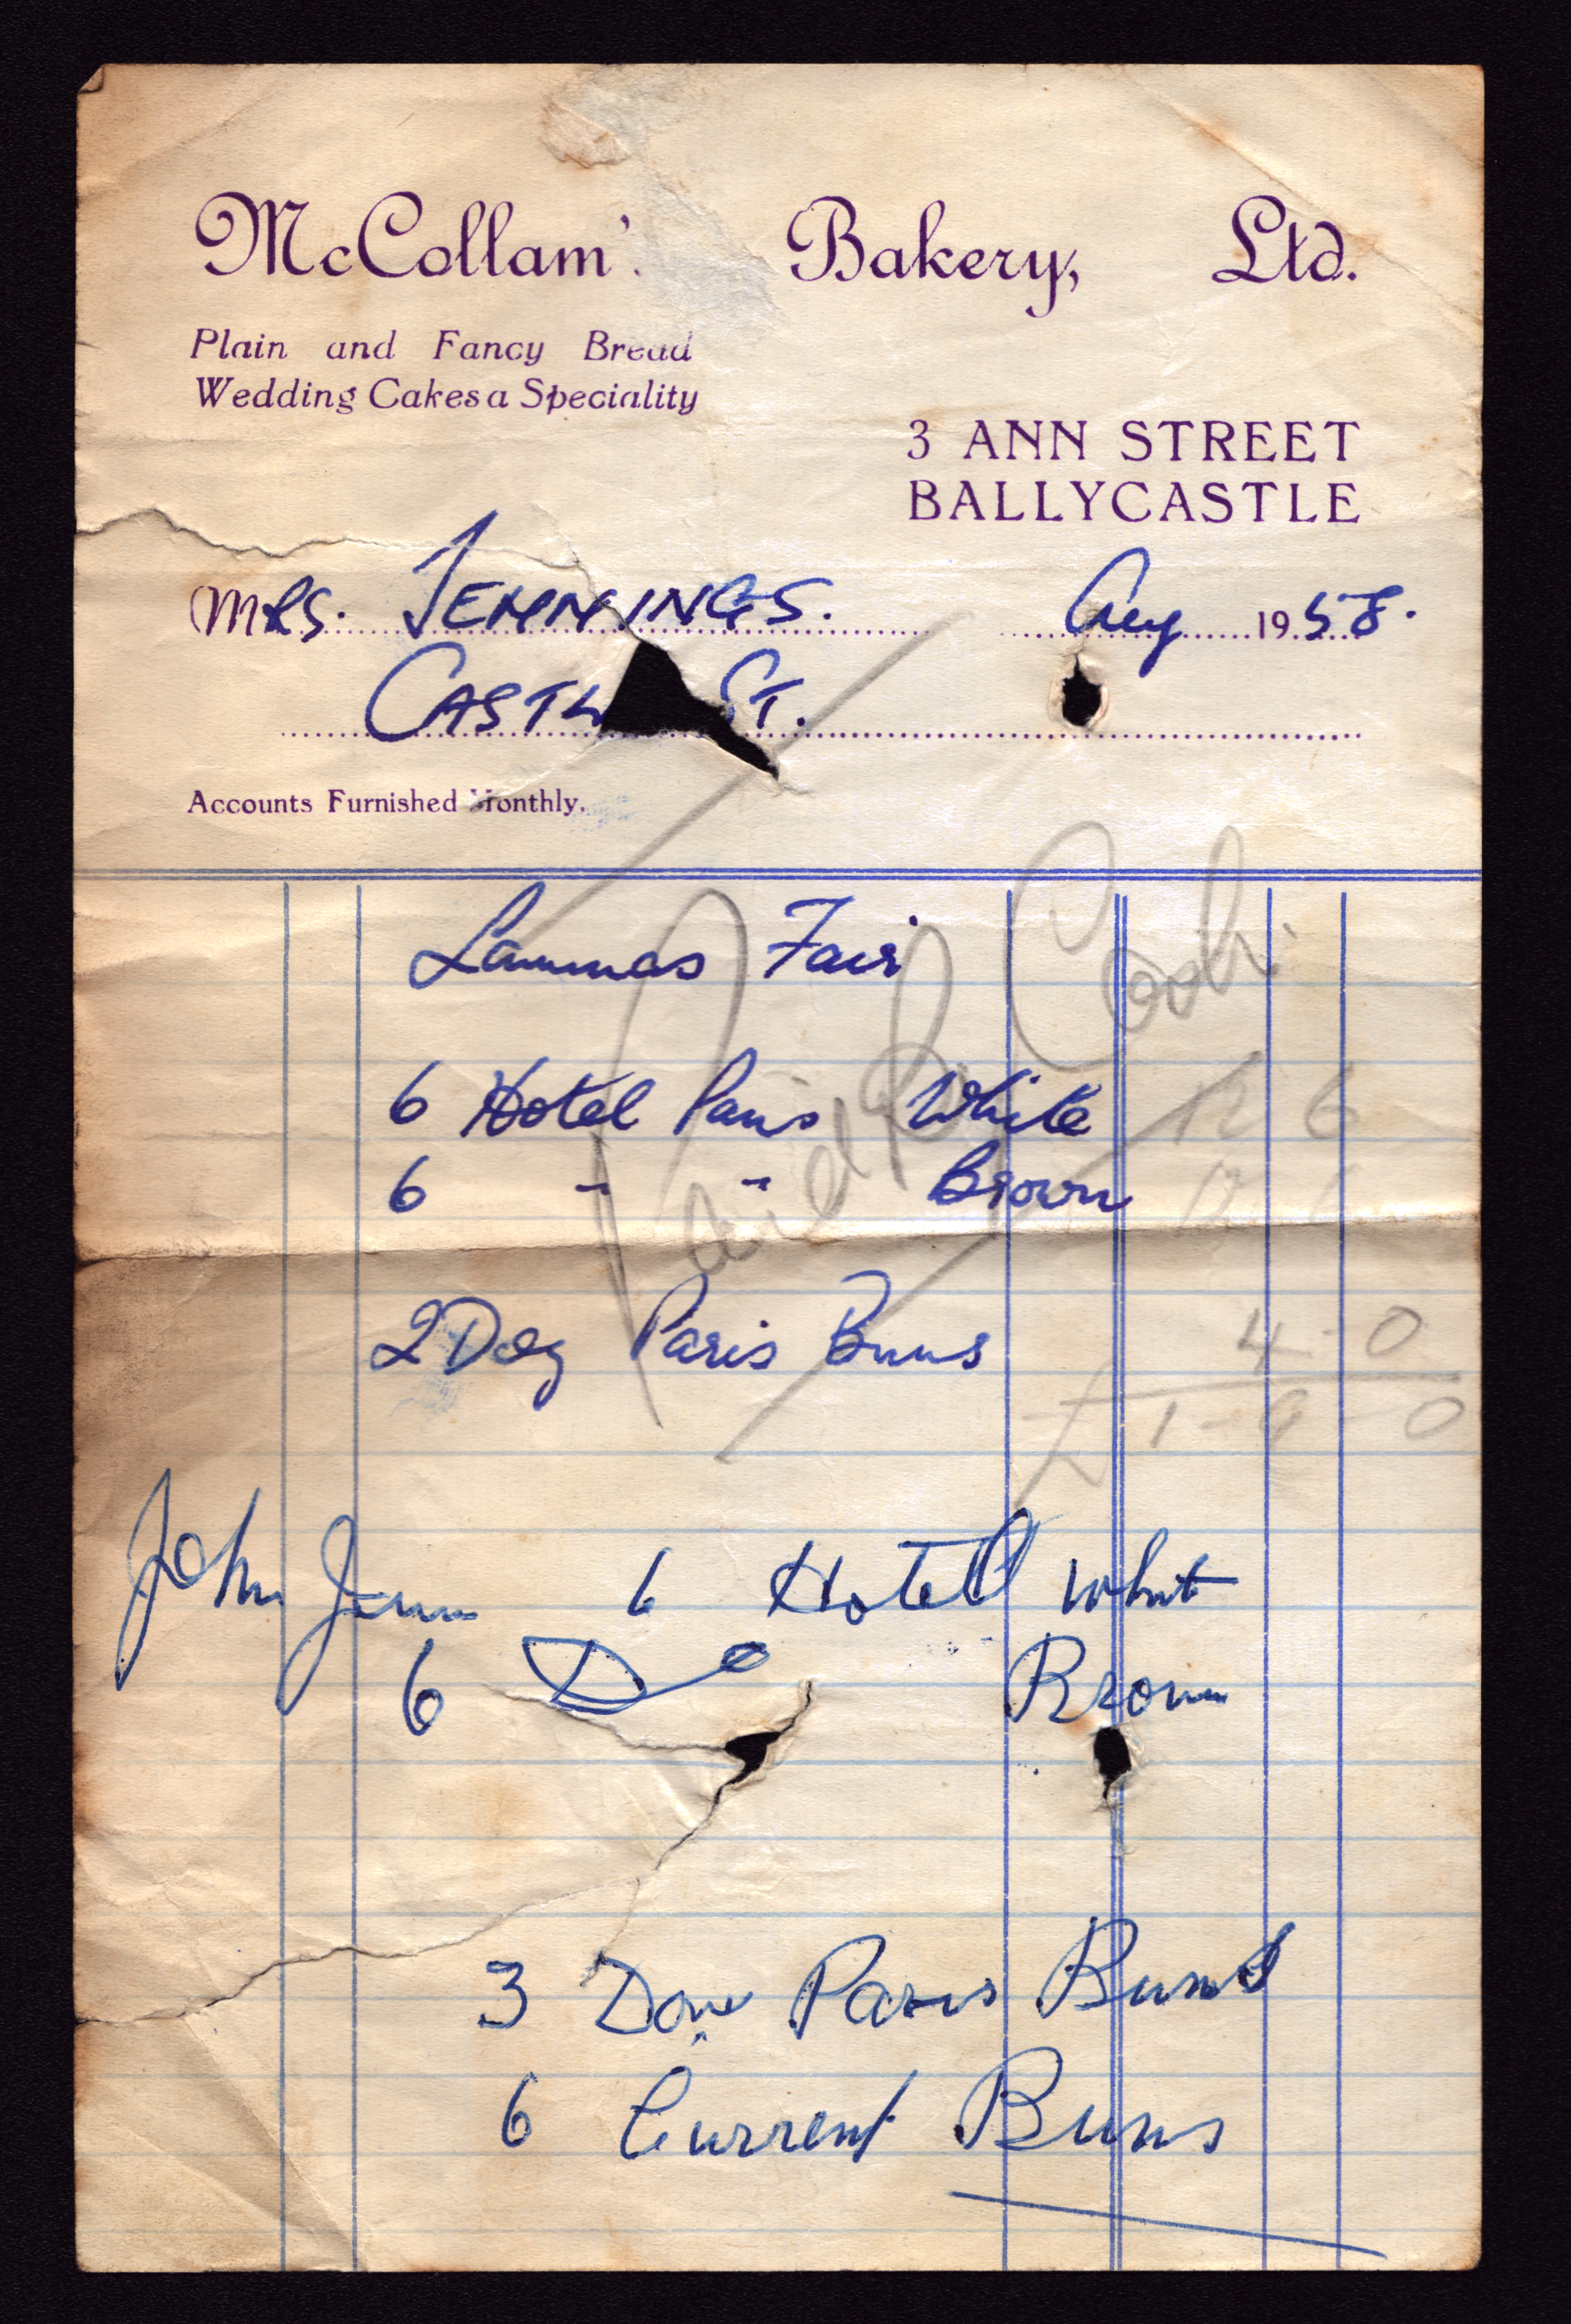 McCollam' Bakery, Ltd.
Plain and Fancy Bread
Wedding Cakes a Speciality
3 ANN STREET
BALLYCASTLE
MRS. JENNINGS. Aug 1958.
CASTL ST.
Accounts Furnished Monthly.
Lammas Fair
6 Hotel Pans White 12 6
6 " " Brown 12 6
Paid Cash
2 Doz Paris Buns 4-0
£1-9-0
John 6 Hotel Whit
6 Do Brown
3 Doz Paris Buns
6 Current Buns